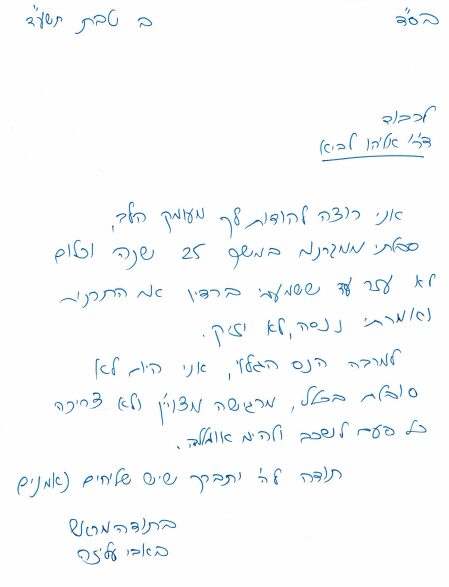 בס"ד ב טבת תשע"ד
לכבוד
ד"ר אליהו לביא
אני רוצה להודות לך מעומק הלב,
סבלתי ממגרנות במשך 25 שנה וכלום
לא עזר עד ששמעתי ברדיו את התרנים
ואמרתי ננסה, לא יזיק.
למרבה הנס הגלוי, אני היום לא
סובלת בכלל, מרגישה מצויין ולא צריכה
כל פעם לשכב ולהיות אומללה.
תודה לה' יתברך שיש שליחים נאמנים
בתודה מראש